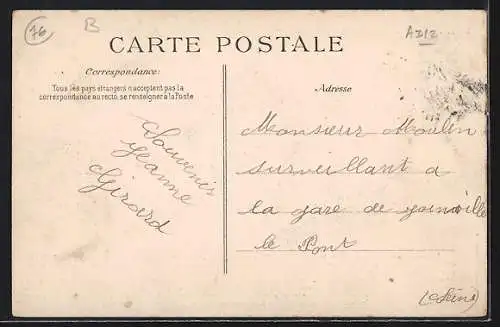 76
B
A212
CARTE POSTALE
Correspondance:
Tous les pays étrangers n'acceptent pas la
correspondance au recto, se renseigner à la Poste
Adresse
Souvenir
Jeanne
Girard
Monsieur Moulin
surveillant a
la gare de joinville
le Pont
(Seine)